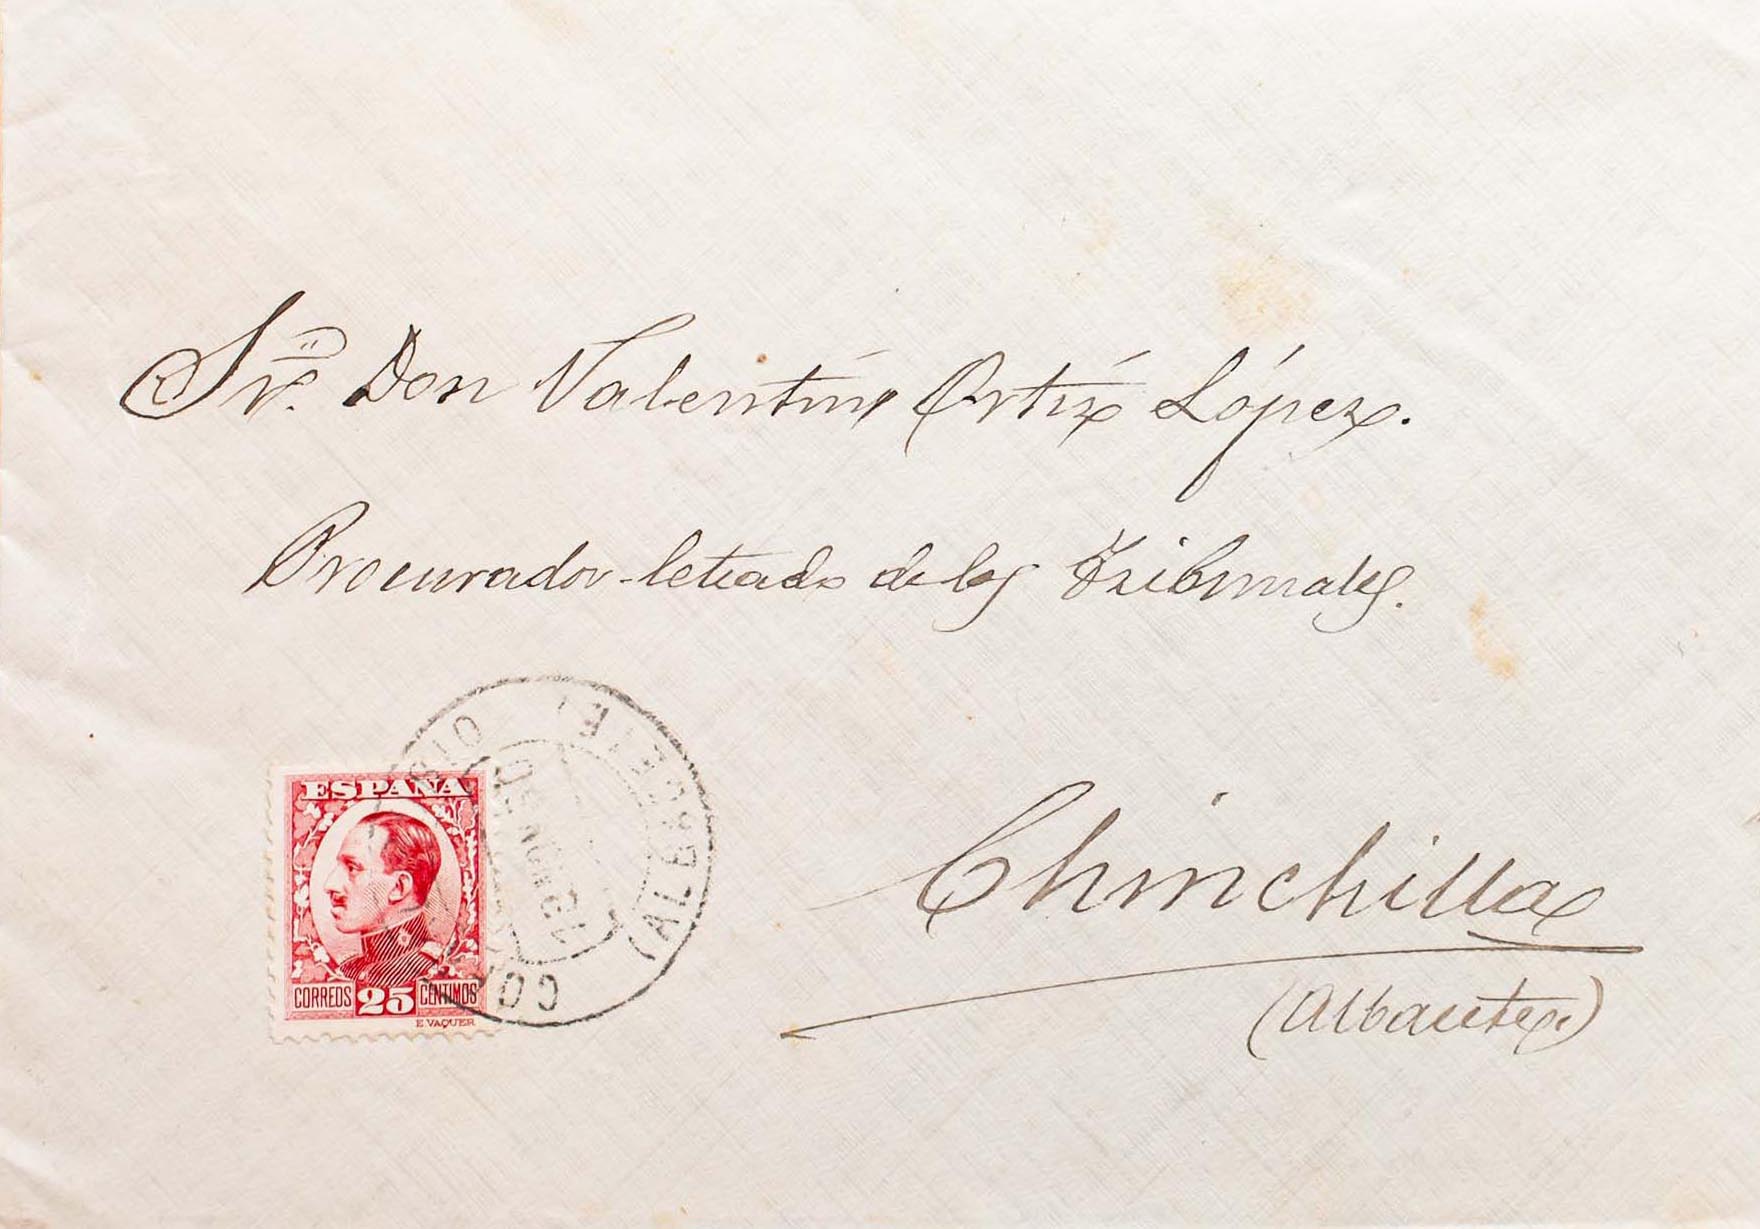 Sr. Don Valentín Ortíz López.
Procurador-letrado de los Tribunales.
Chinchilla
(Albacete)
ESPAÑA
CORREOS 25 CENTIMOS
E VAQUER
(ALBACETE)